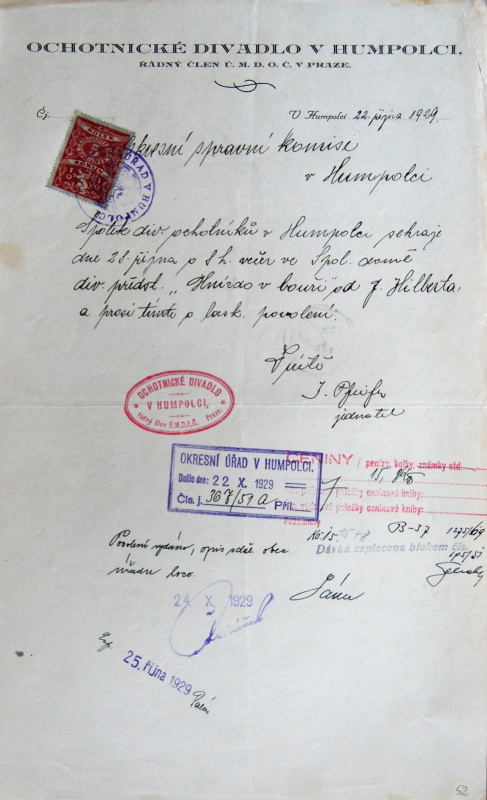 OCHOTNICKÉ DIVADLO V HUMPOLCI.
ŘÁDNÝ ČLEN Ú. M. D. O. Č. V PRAZE.
Čj.
V Humpolci 22. října 1929.
Okresní správní komise
v Humpolci
Spolek div. ochotníků v Humpolci sehraje
dne 28. října o 8 h. večer ve Spol. domě
div. předst. „Hnízdo v bouři od J. Hilberta
a prosí tímto o lask. povolení.
V úctě
J. Pfeifer
jednatel
OCHOTNICKÉ DIVADLO
V HUMPOLCI,
řádný člen Ú.M.D.O.Č. Praze.
OKRESNÍ ÚŘAD V HUMPOLCI.
Došlo dne: 22 X. 1929
Čís. j. Příl.
CENINY / peníze, kolky, známky atd.
položky ceninové knihy:
položky ceninové knihy:
B-37
Dávka zaplacena blokem čís.
Povolení vydáno, opis sděl. obec.
úřadu
24. X. 1929
25. října 1929
52